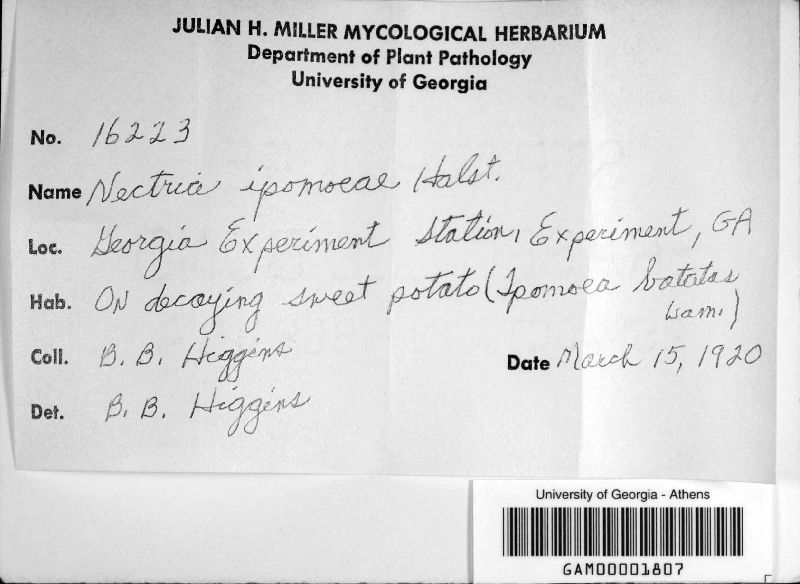 JULIAN H. MILLER MYCOLOGICAL HERBARIUM
Department of Plant Pathology
University of Georgia
No. 16223
Name Nectria ipomoeae Halst.
Loc. Georgia Experiment Station, Experiment, GA
Hab. ON decaying sweet potato (Ipomoea batatas
Lam.)
Coll. B. B. Higgins Date March 15, 1920
Det. B. B. Higgins
University of Georgia - Athens
GAM00001807